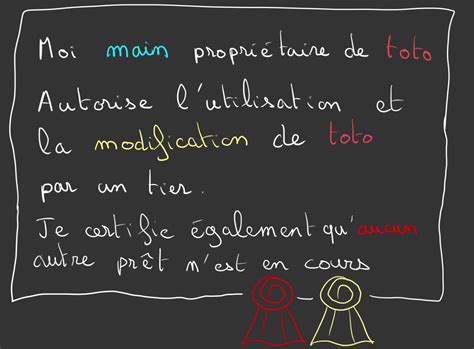 Moi main propriétaire de toto
Autorise l'utilisation et
la modification de toto
par un tier.
Je certifie également qu'aucun
autre prêt n'est en cours